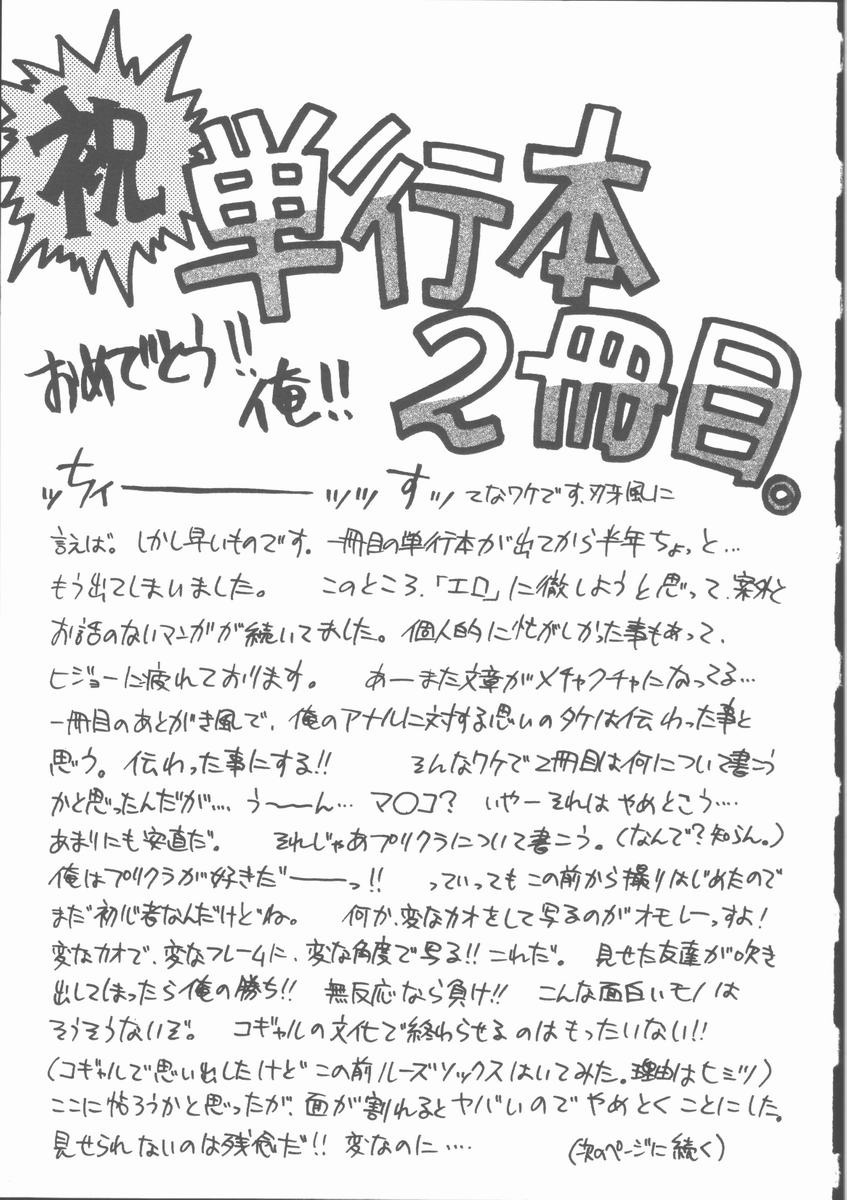 祝
単行本
2冊目。
おめでとう!!
俺!!
ッちィーーーーーッッ すッ てなワケです、刃牙風に
言えば。 しかし早いものです。一冊目の単行本が出てから半年ちょっと…
もう出てしまいました。 このところ、「エロ」に徹しようと思って、案外と
お話のないマンガが続いてました。個人的に忙がしかった事もあって、
ヒジョーに疲れております。 あーまた文章がメチャクチャになってる…
一冊目のあとがき風で、俺のアナルに対する思いのタケは伝わった事と
思う。伝わった事にする!! そんなワケで2冊目は何について書こう
かと思ったんだが…. う〜〜ん… マ〇コ? いやーそれは やめとこう….
あまりにも安直だ。 それじゃあプリクラについて書こう。(なんで?知らん。)
俺はプリクラが好きだーーっ!! っていっても この前から撮りはじめたので
まだ初心者なんだけどね。 何か、変なカオをして写るのがオモレーっすよ!
変なカオで、変なフレームに、変な角度で写る!! これだ。 見せた友達が吹き
出してしまったら俺の勝ち!! 無反応なら負け!! こんな面白いモノは
そうそうないぞ。 コギャルの文化で終わらせるのはもったいない!!
(コギャルで思い出したけど この前ルーズソックスはいてみた。理由はヒミツ)
ここに帖ろうかと思ったが、面が割れるとヤバいので やめとくことにした。
見せられないのは残念だ!! 変なのに….
(次のページに続く)